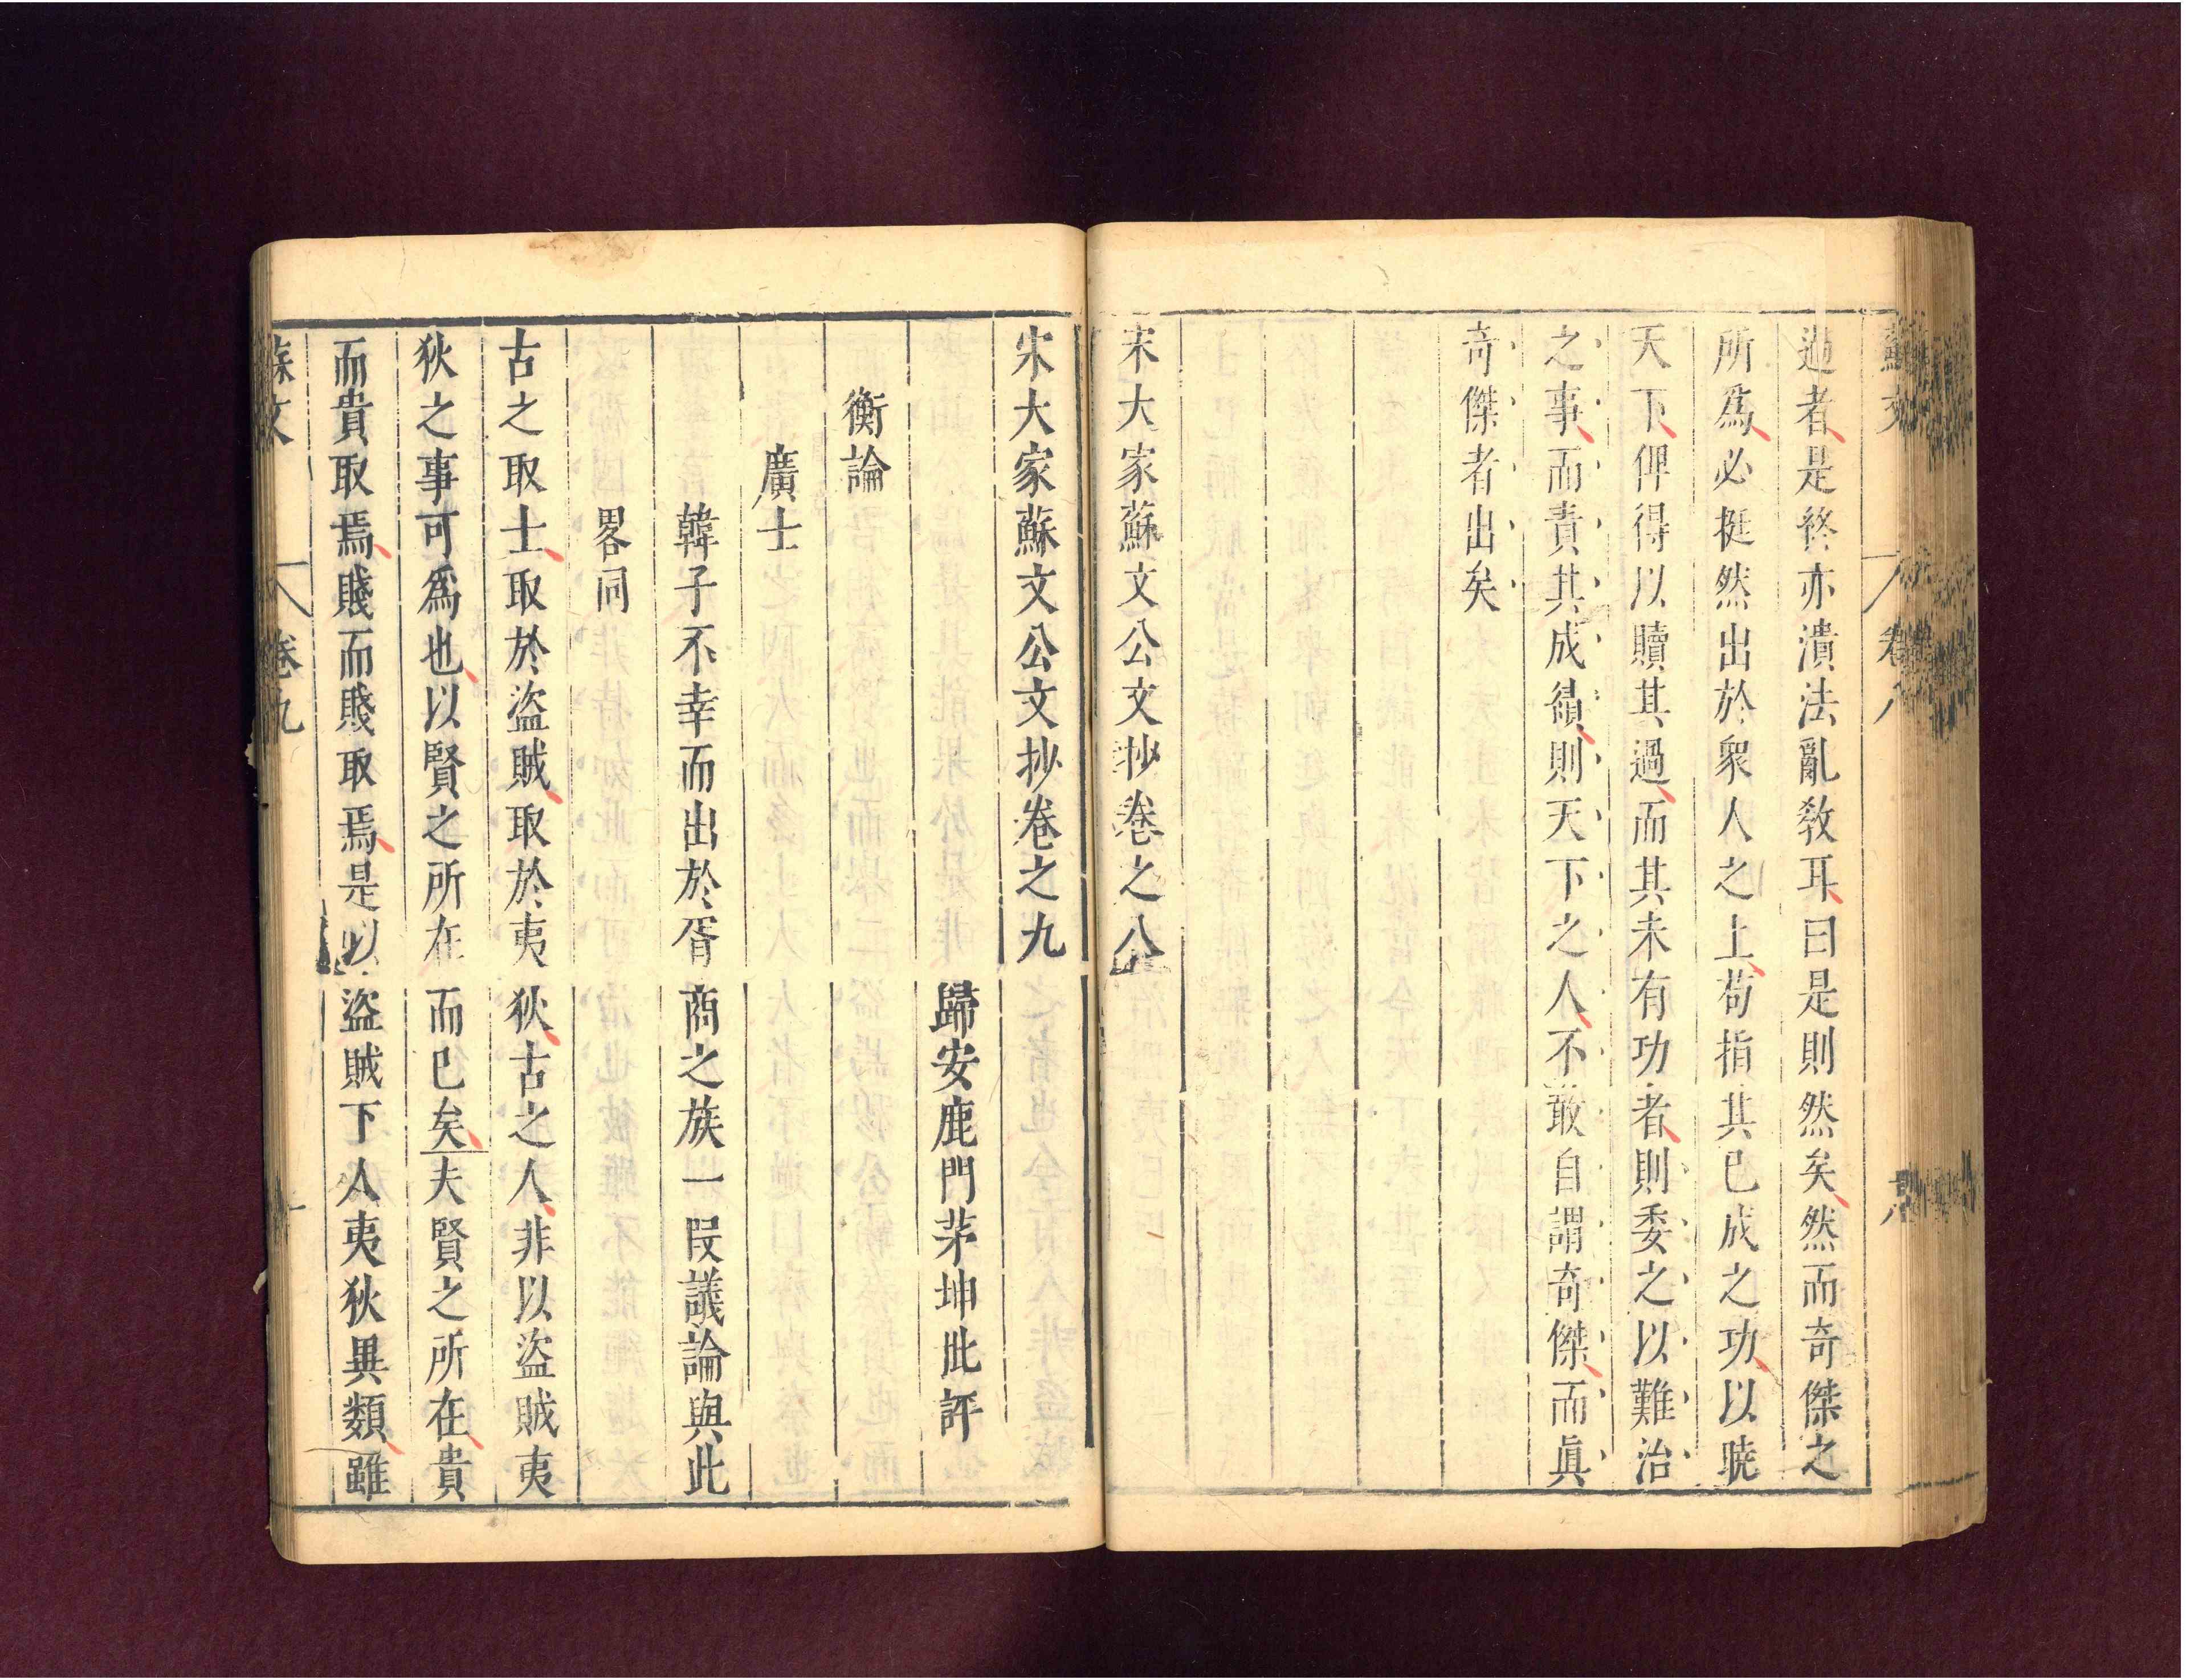 蘇文 卷八 十八
過者是終亦潰法亂敎耳曰是則然矣然而奇傑之
所爲必挺然出於衆人之上苟指其已成之功以曉
天下俾得以贖其過而其未有功者則委之以難治
之事而責其成績則天下之人不敢自謂奇傑而眞
奇傑者出矣
宋大家蘇文公文抄卷之八
宋大家蘇文公文抄卷之九
歸安鹿門茅坤批評
衡論
廣士
韓子不幸而出於胥商之族一段議論與此
畧同
古之取士取於盜賊取於夷狄古之人非以盜賊夷
狄之事可爲也以賢之所在而已矣夫賢之所在貴
而貴取焉賤而賤取焉是以盜賊下人夷狄異類雖
蘇文 卷九 一